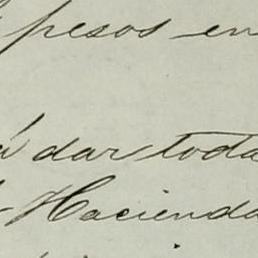 pesos en
á dar toda
Hacienda